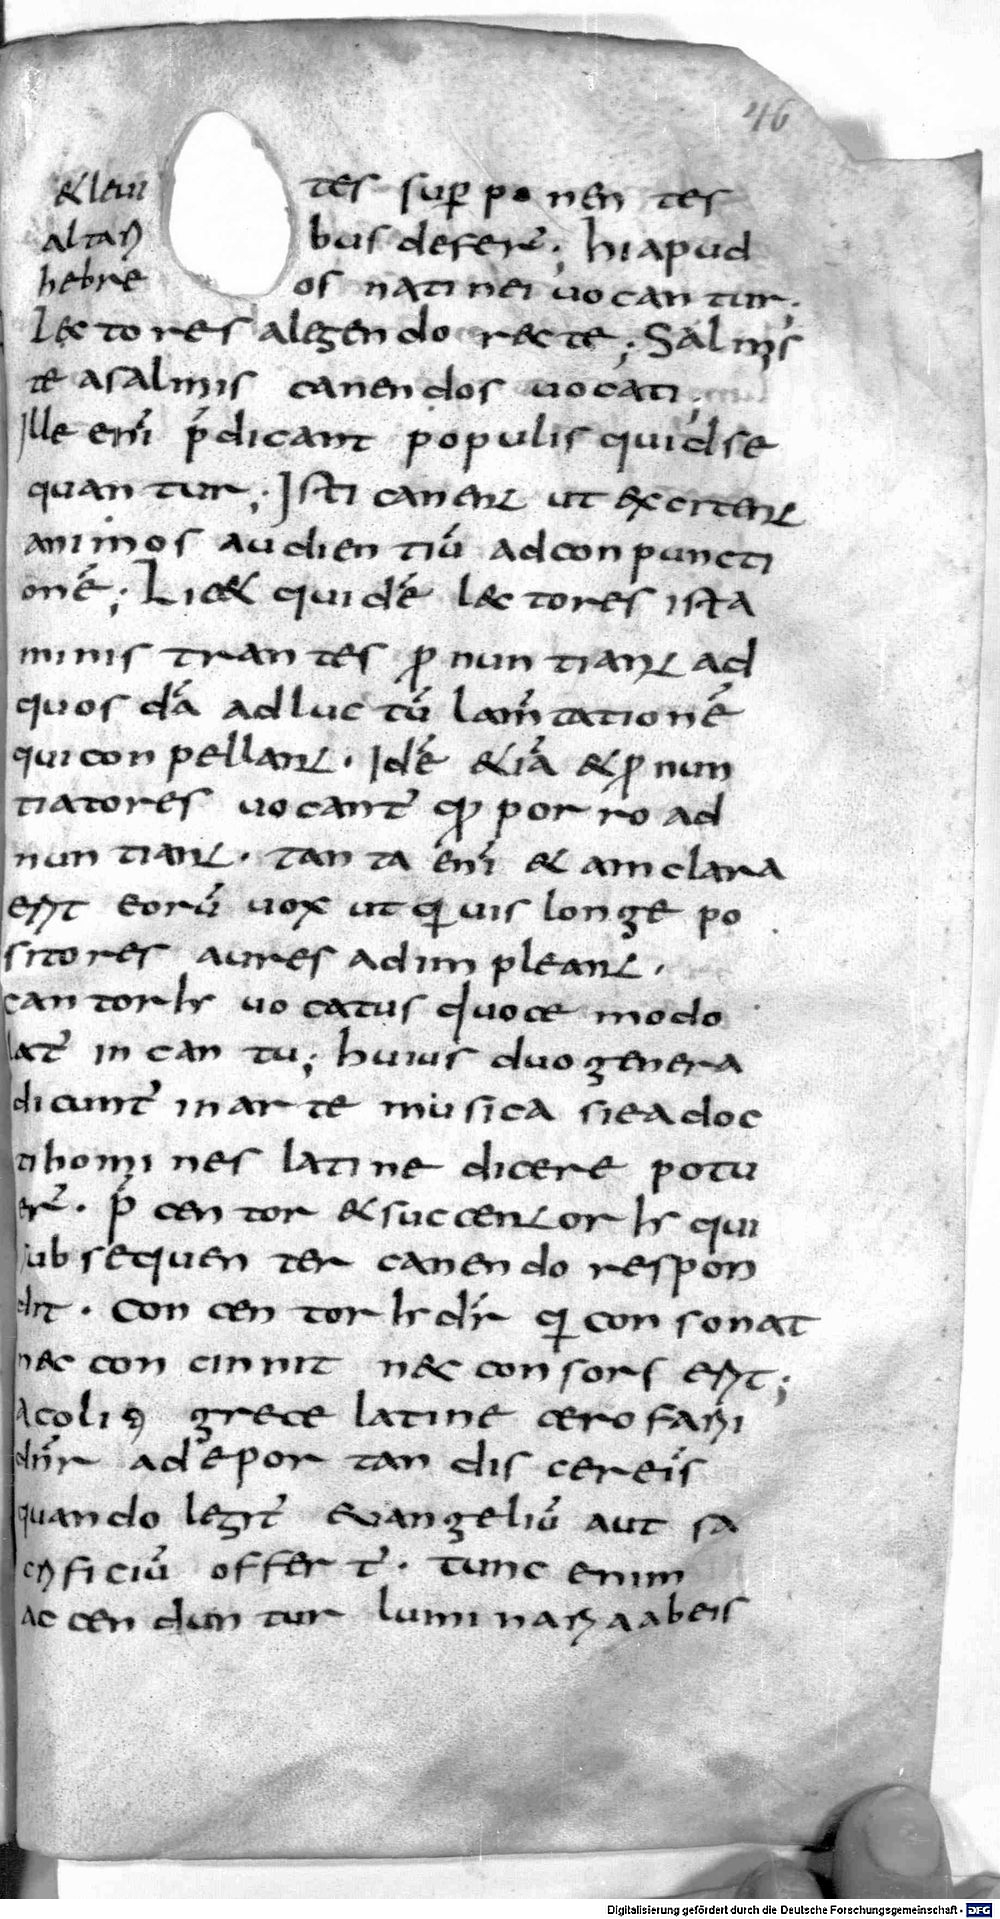 46
&leui tes sup̄ ponen tes
altaꝝ bus deferr̄; hi apud
hebre os natinei uocantur;
Lectores a legendo recte; Salmis
te a salmis canendos uocati;
Ille enī p̄dicant populis quid se
quantur; Isti canent ut excitent
animos audientiū ad conpuncti
onē; Lic& quidē lectores ista
minis trantes ꝓnuntiant ad
quos dā ad luc tū lamtationē
qui conpellant. Idē &iā &ꝓnun
tiatores uocant̄ qꝓ porro ad
nuntiant. tan ta enī & am clara
est eorū uox ut qͥuis longe po
sitores aures adimpleant.
cantor hr uocatus quoce modo
lat̄ in cantu; huius duo genera
dicunt̄ in arte musica siea doc
ti homines latine dicere potu
er̄. p̄centor & succentor hr qui
subsequenter canendo respon
dit. Concentor hr dr̄ qͥ consonat
nec concinnit nec consors est;
Acolitꝰ grece latine cerofarii
dnr̄ ad eportandis cereīs
quando legit̄ euangeliū aut sa
crificiū offert̄. tunc enim
accenduntur luminaria ab eis
Digitalisierung gefördert durch die Deutsche Forschungsgemeinschaft - DFG